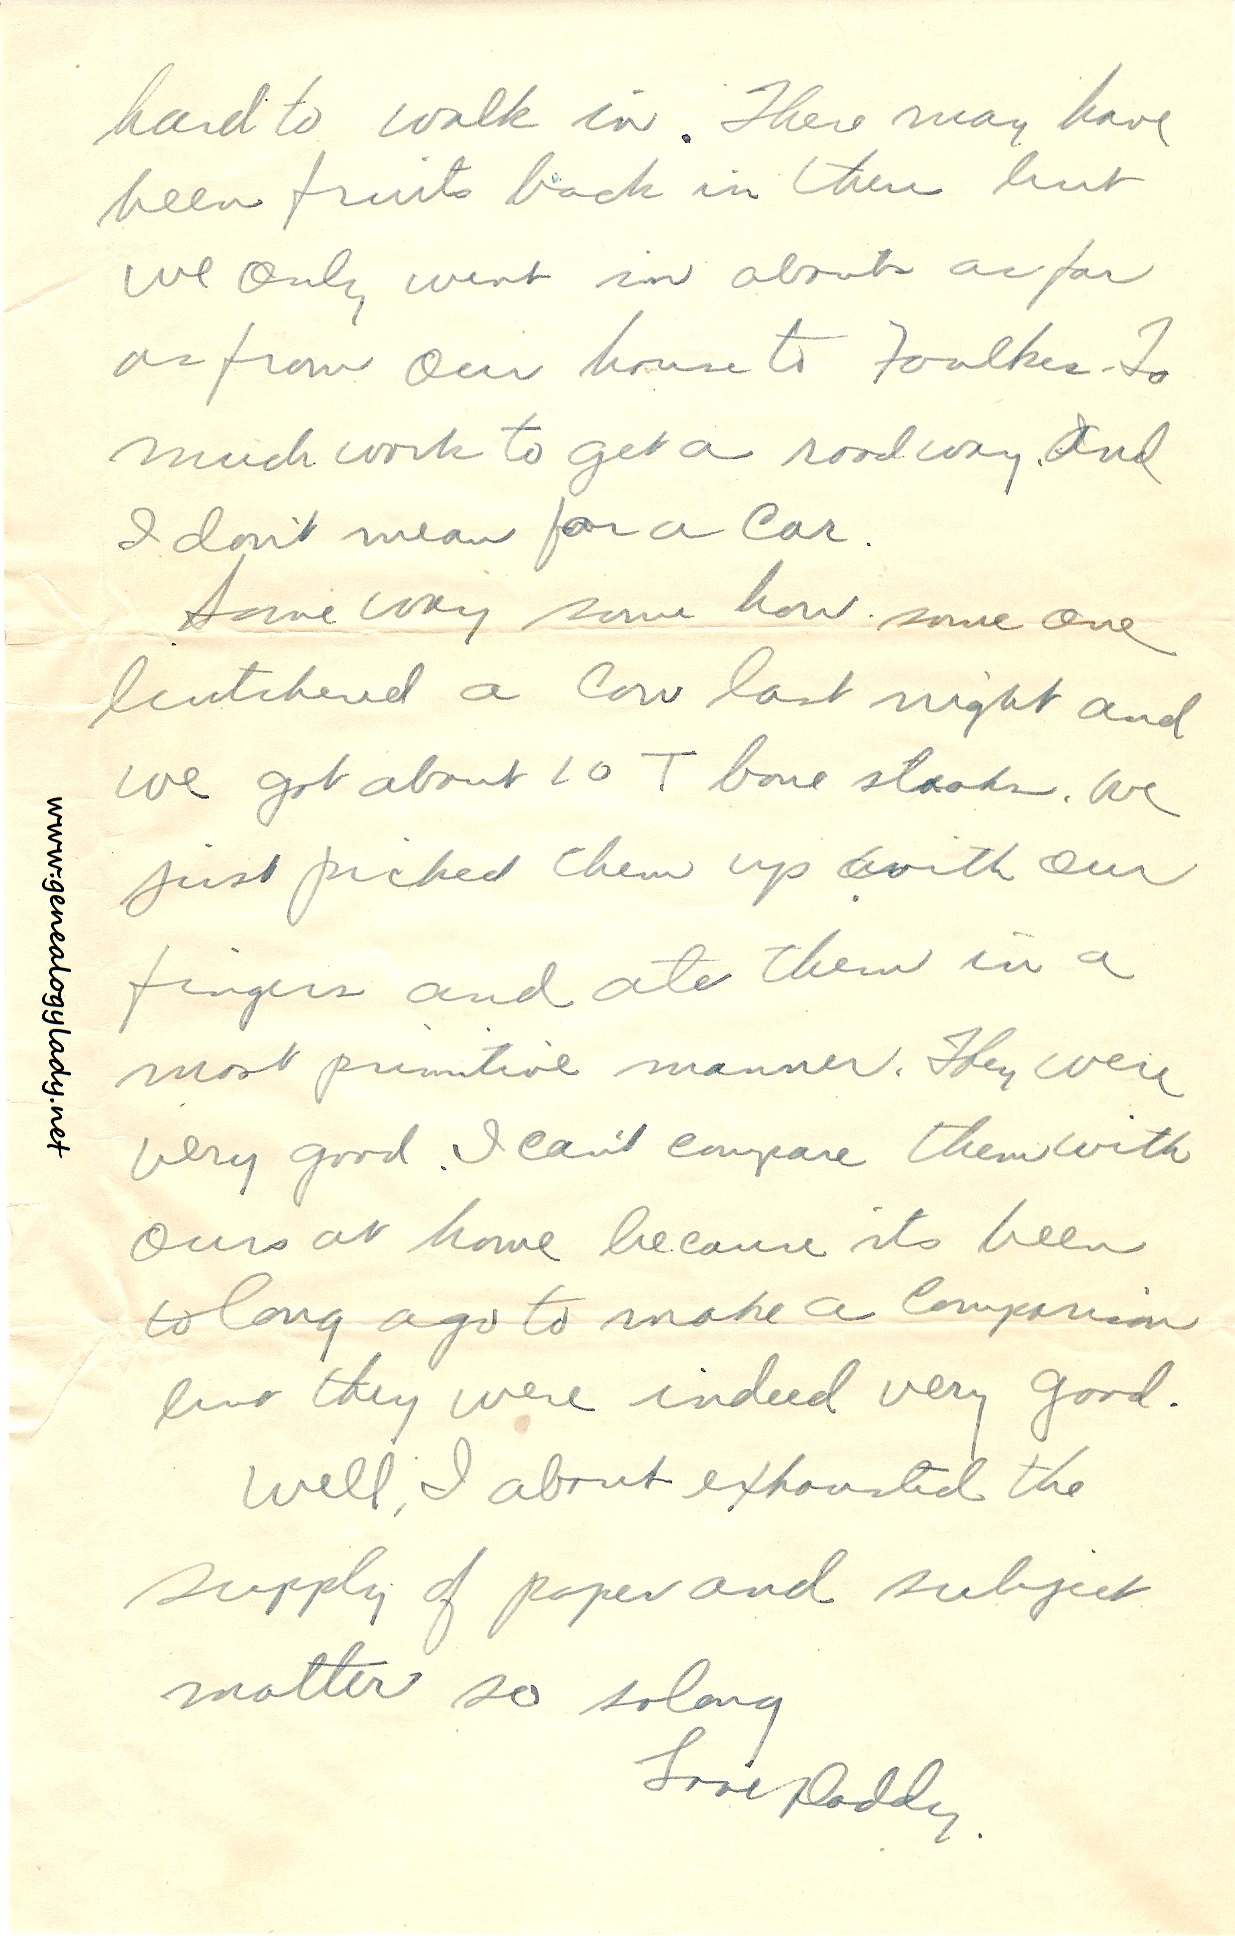 hard to walk in. There may have
been fruits back in there but
we only went in about as far
as from our house to Foulkes. To
much work to get a roadway. And
I don't mean for a car.
Some way some how some one
butchered a cow last night and
we got about 10 T bone steaks. We
just picked them up with our
fingers and ate them in a
most primitive manner. They were
very good. I can't compare them with
ours at home because its been
so long ago to make a comparison
but they were indeed very good.
Well, I about exhausted the
supply of paper and subject
matter so solong
Love Daddy.
www.genealogylady.net